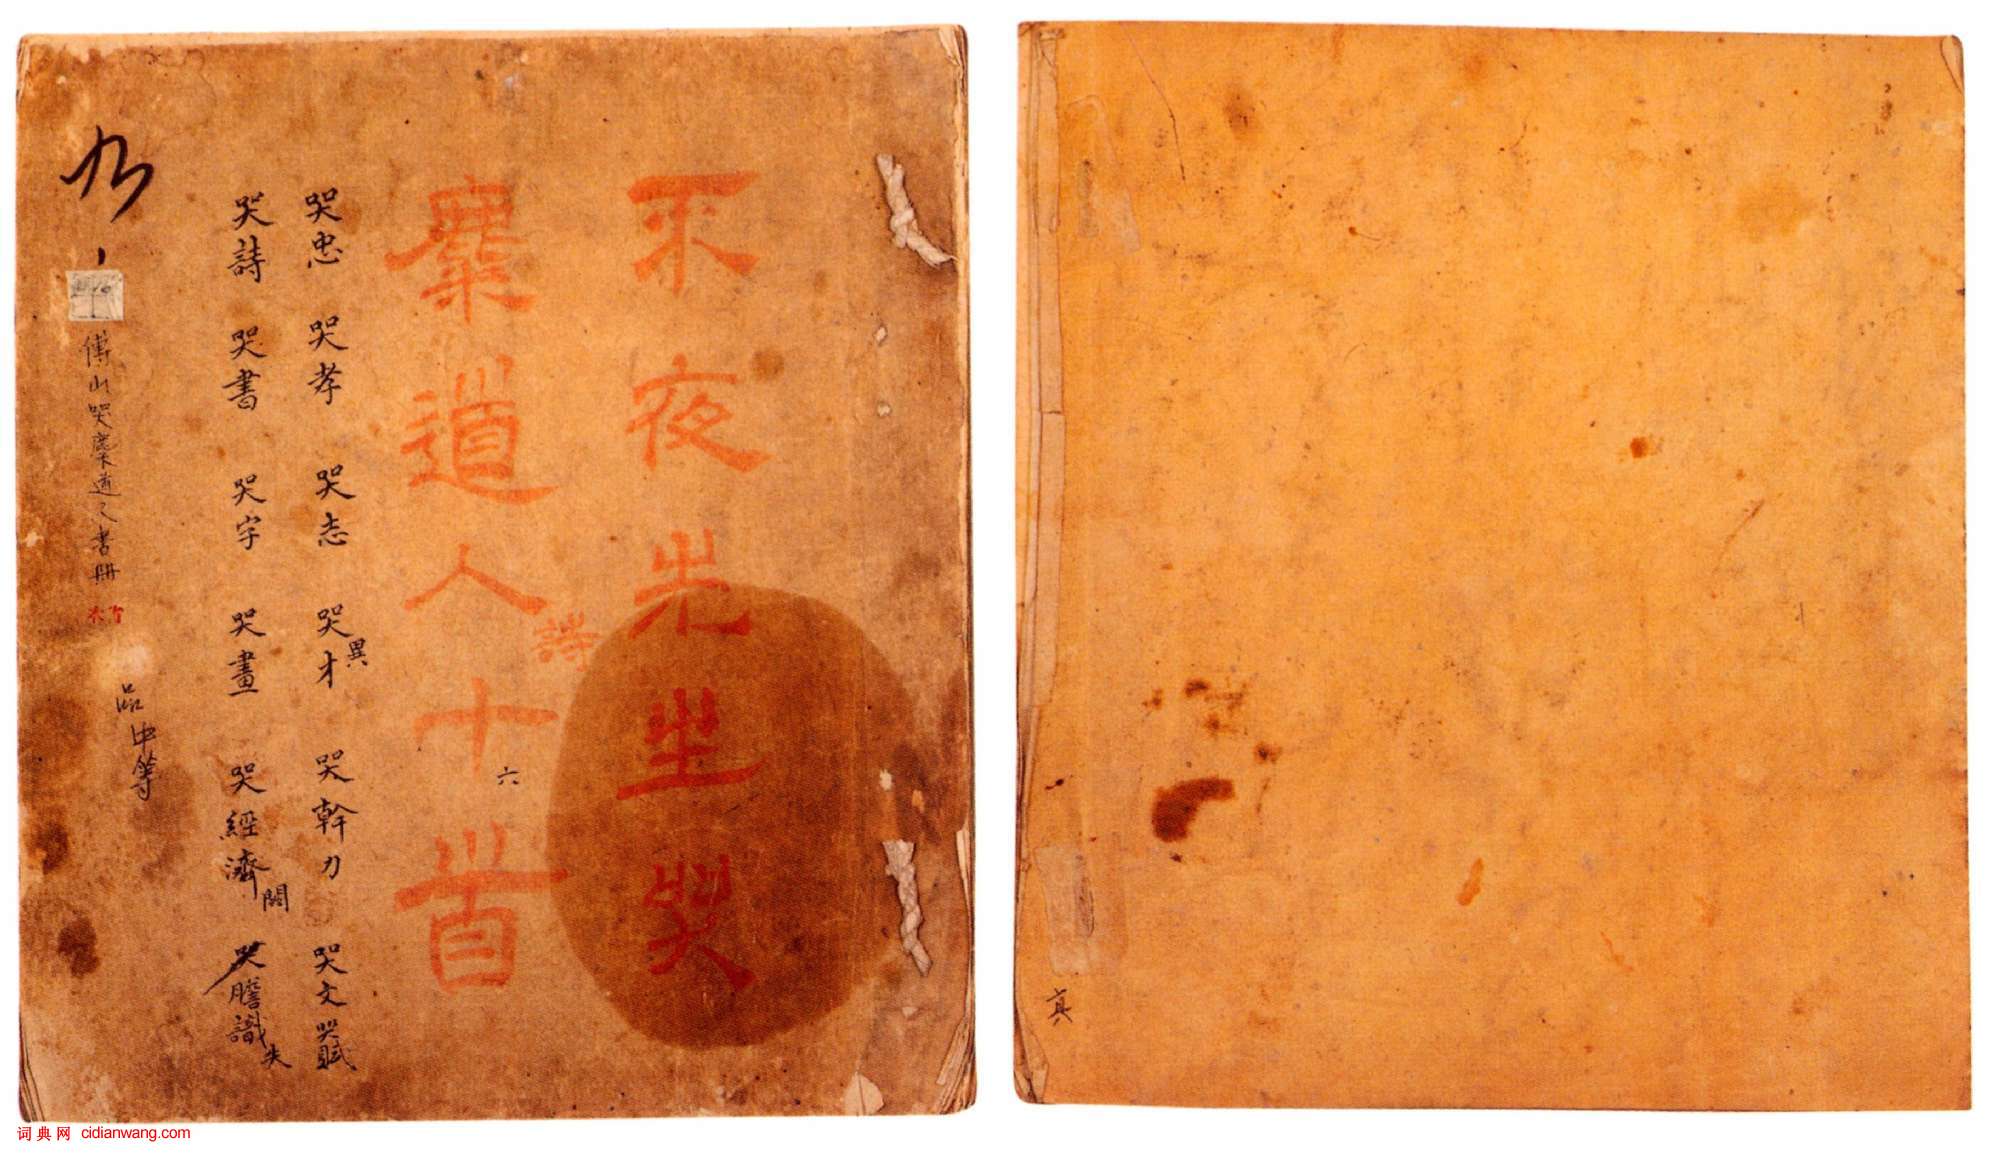 不夜先坐哭
麋道人十六首
詩
哭忠 哭孝 哭志 哭異才 哭幹力 哭文 哭賦
哭詩 哭書 哭字 哭畫 哭經濟 闕 哭膽識 失
九
傅山哭麋道人書册
品中等
真
词典网 cidianwang.com